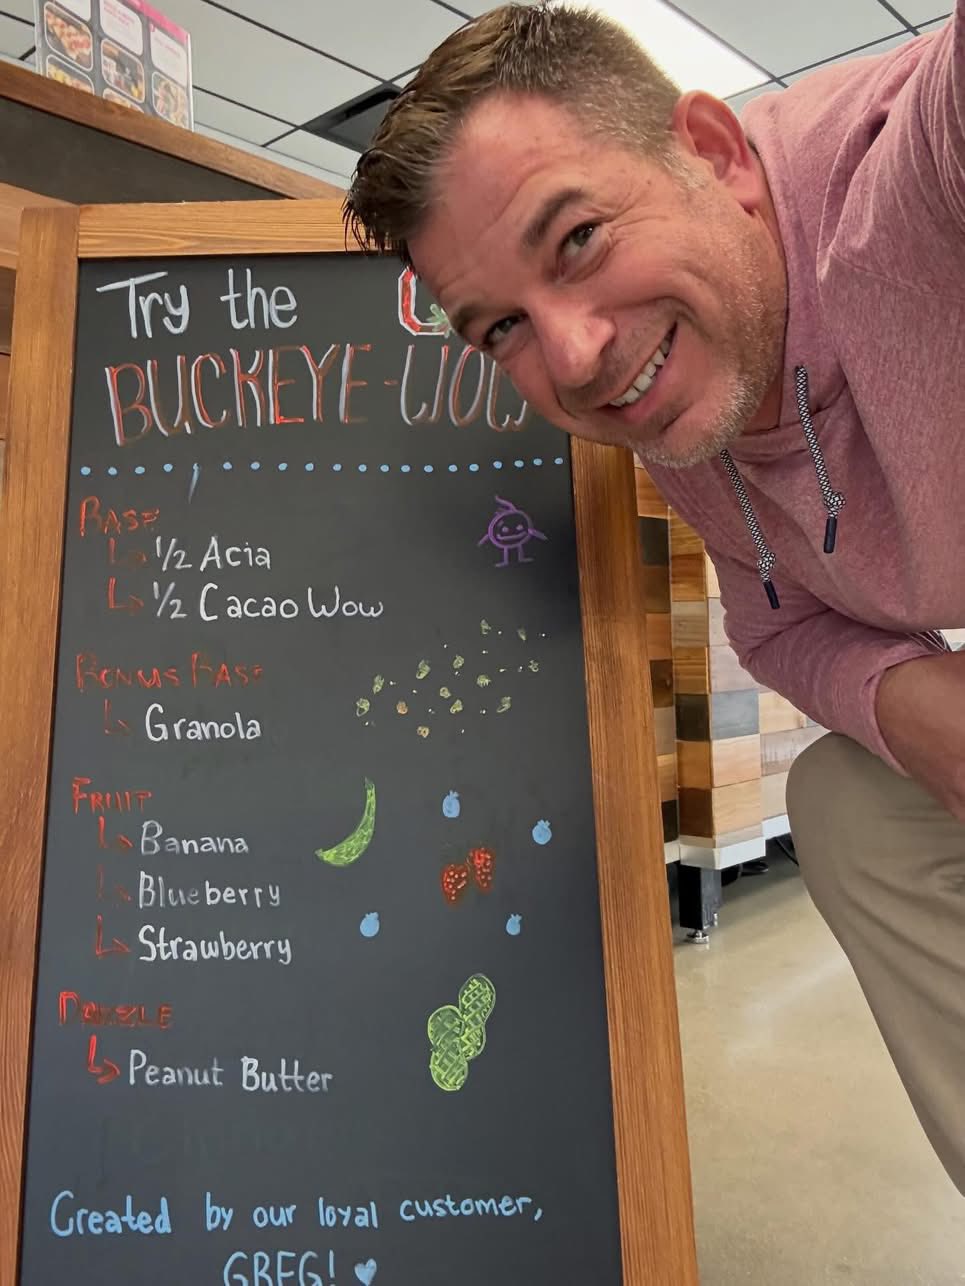 Try the
BUCKEYE-WOW
BASE
1/2 Acia
1/2 Cacao Wow
BONUS BASE
Granola
FRUIT
Banana
Blueberry
Strawberry
DRIZZLE
Peanut Butter
Created by our loyal customer,
GREG!